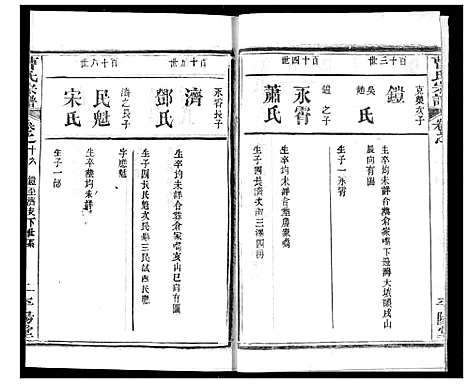 曹氏宗譜
百十三世
克榮次子
鎧
妣吳氏
生卒均未詳合葬倉家嘴下邊灣大塘頭戌山
辰向有圖
生子一永霄
百十四世
鎧之子
永霄
蕭氏
生卒均未詳合葬倉家嘴
生子四長濟次三澤四
百十五世
永霄長子
濟
鄧氏
生卒均未詳合葬倉家嘴亥山巳向有圖
生子四長民魁次民三民四民
百十六世
濟之長子
民魁
宋氏
字應魁
生卒均未詳
生子一
曹氏宗譜
卷之十六
鎧至濟支下世系
二
平陽堂